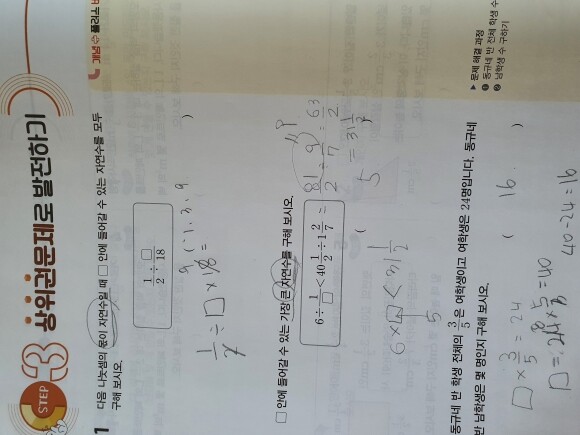 STEP 3 상위권 문제로 발전하기
개념+플러스
1 다음 나눗셈의 몫이 자연수일 때 □ 안에 들어갈 수 있는 자연수를 모두
구해 보시오.
1/2 ÷ □/18
( 1, 3, 9 )
1/2 ÷ □ × 18 =
9
□ 안에 들어갈 수 있는 가장 큰 자연수를 구해 보시오.
6 ÷ 1/□ < 40 1/2 ÷ 1 2/7 =
81/2 ÷ 9/7 = 63/2
= 31 1/2
( 5
6 × □ < 31 1/2
5
동규네 반 학생 전체의 3/5은 여학생이고 여학생은 24명입니다. 동규네
반 남학생은 몇 명인지 구해 보시오.
( 16 )
□ × 3/5 = 24
□ = 24 × 5/3 = 40
8
40-24=16
▶ 문제 해결 과정
❶ 동규네 반 전체 학생 수
❷ 남학생 수 구하기